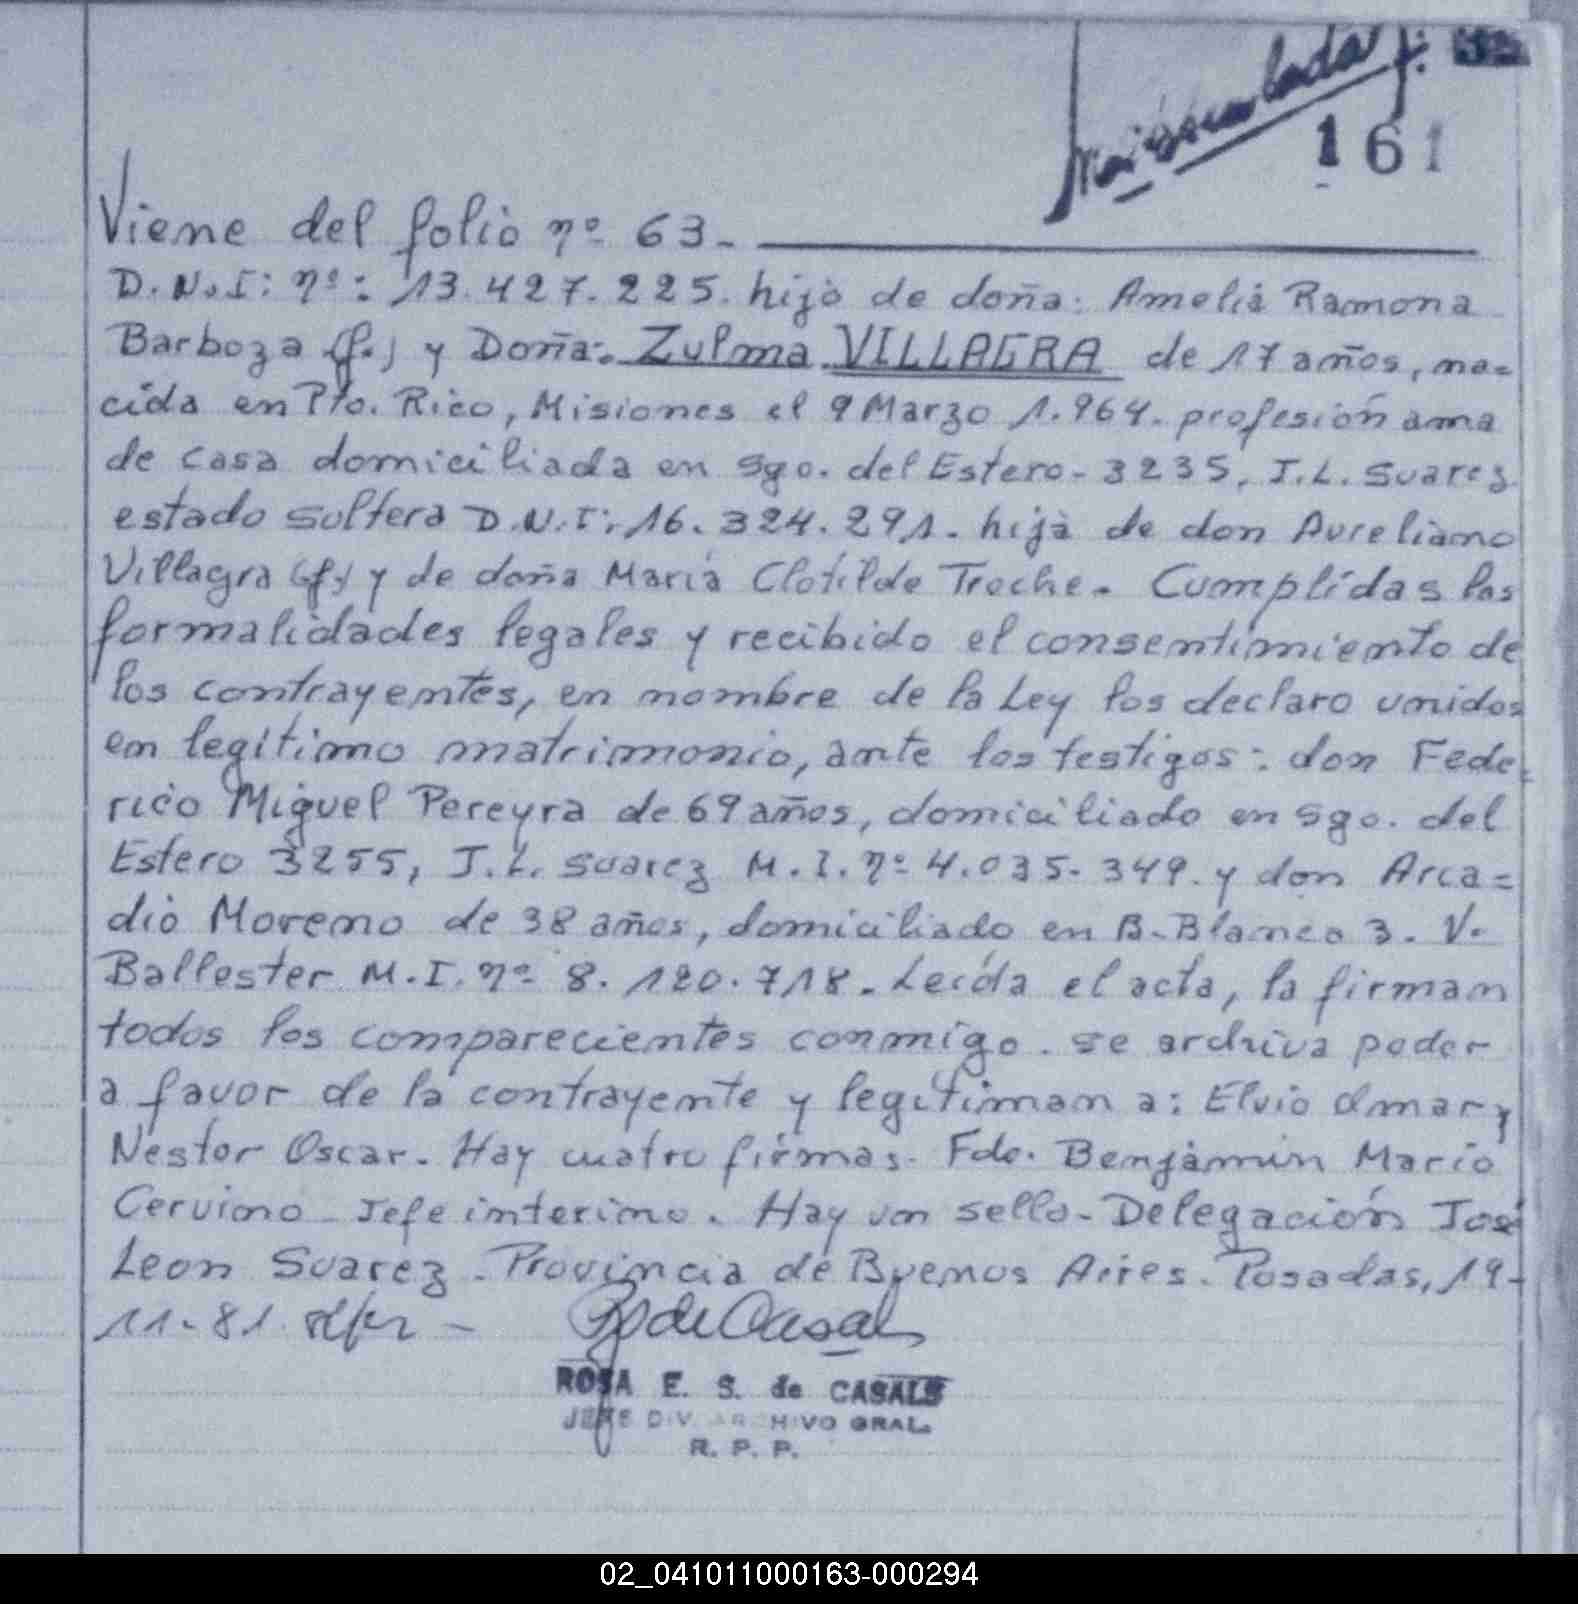 161
Viene del folio nº 63.-
D.N.I: nº: 13.427.225. hijo de doña: Amelia Ramona
Barboza (f.) y Doña: Zulma VILLAGRA de 17 años, na=
cida en Pto. Rico, Misiones el 9 Marzo 1.964. profesión ama
de casa domiciliada en Sgo. del Estero - 3235, J.L. Suarez
estado soltera D.N.I: 16.324.291. hija de don Aureliano
Villagra (f) y de doña María Clotilde Troche. Cumplidas las
formalidades legales y recibido el consentimiento de
los contrayentes, en nombre de la Ley los declaro unidos
en legítimo matrimonio, ante los testigos: don Fede=
rico Miguel Pereyra de 69 años, domiciliado en Sgo. del
Estero 3255, J.L. Suarez M.I. nº 4.035.349. y don Arca=
dio Moreno de 38 años, domiciliado en B. Blanca 3. V.
Ballester M.I. nº 8.120.718. Leída el acta, la firman
todos los comparecientes conmigo. Se archiva poder
a favor de la contrayente y legitiman a: Elvio Omar y
Nestor Oscar. Hay cuatro firmas. Fdo. Benjamin Mario
Cervino Jefe interino. Hay un sello. Delegación José
Leon Suarez. Provincia de Buenos Aires. Posadas, 19-
11-81.
R de Casals
ROSA E. S. de CASALS
JEFE DIV. ARCHIVO GRAL.
R. P. P.
02_041011000163-000294